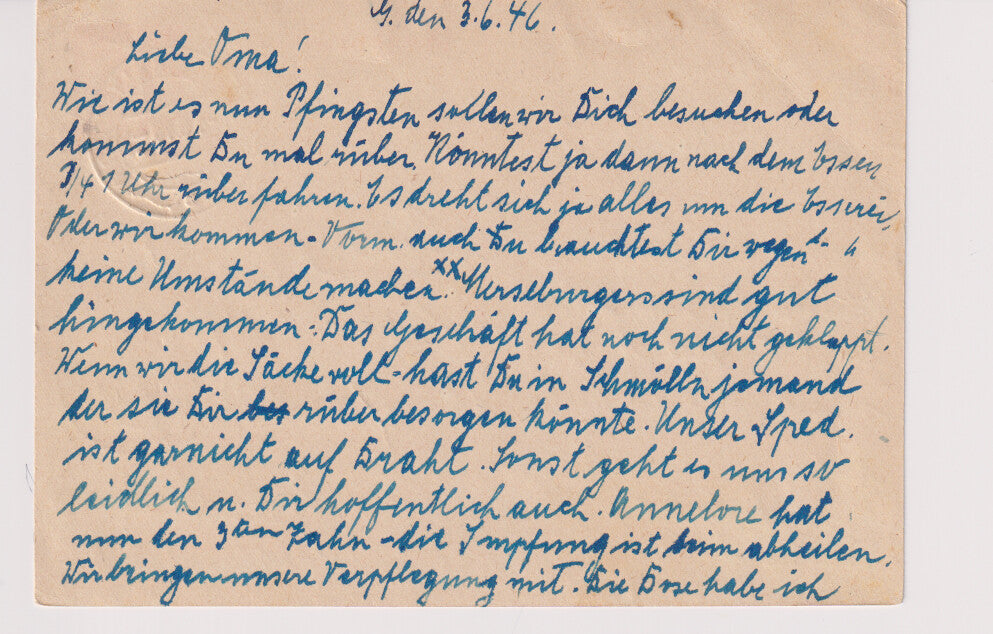 G. den 3.6.46.
Liebe Oma!
Wie ist es nun Pfingsten sollen wir Dich besuchen oder
kommst Du mal rüber. Könntest ja dann nach dem Essen
3/4 1 Uhr rüber fahren. Es dreht sich ja alles um die Esserei,
Oder wir kommen - Vorm. auch Du brauchtest Dir wegen d. "
keine Umstände machen. xx Merseburgers sind gut
hingekommen. Das Geschäft hat noch nicht geklappt.
Wenn wir die Säcke voll - hast Du in Schmölln jemand
der sie Dir rüber besorgen könnte. Unser Sped.
ist garnicht auf Draht. Sonst geht es uns so
leidlich u. Dir hoffentlich auch. Annelore hat
nun den 3ten Zahn - die Impfung ist beim abheilen.
Wir bringen unsere Verpflegung mit. Die Dose habe ich